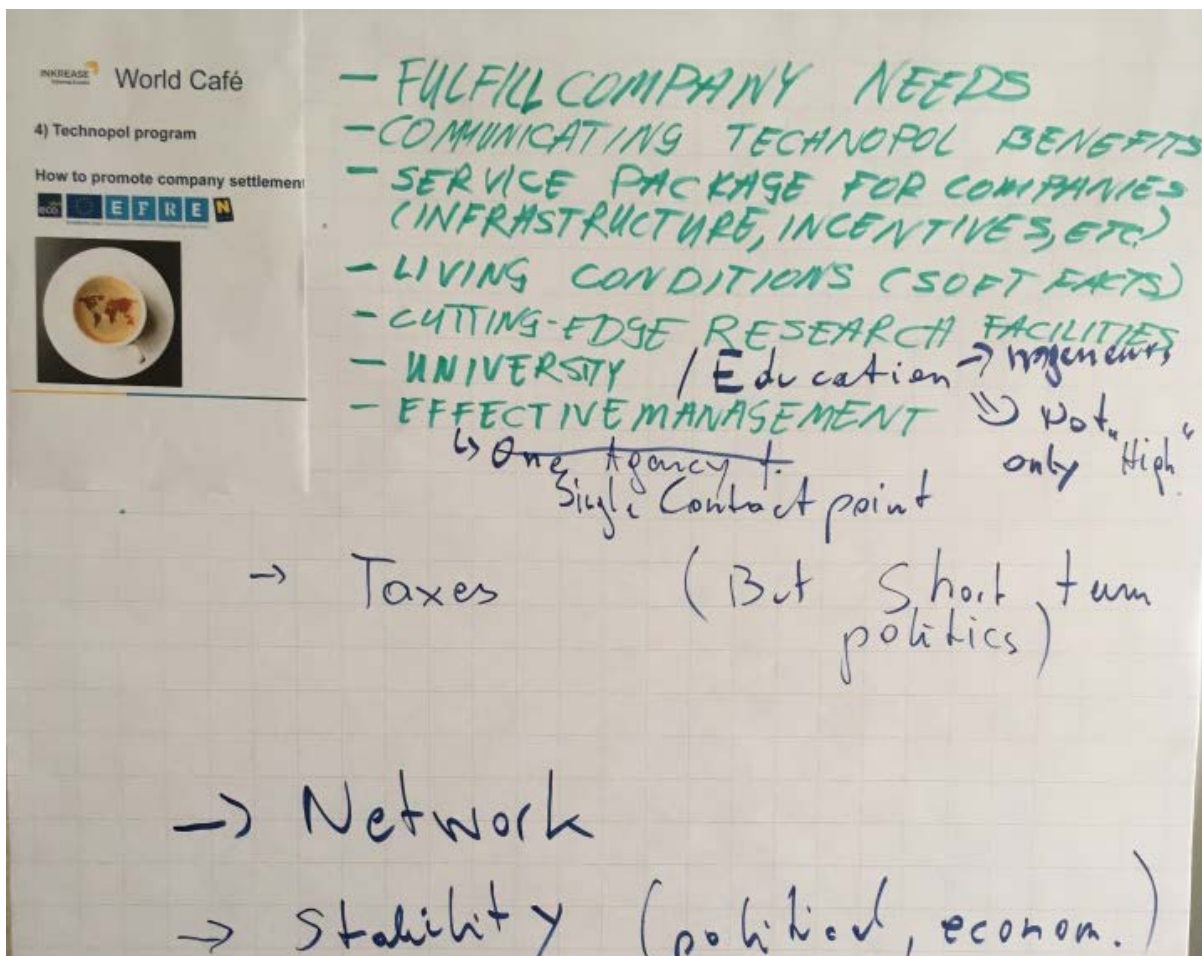 INKREASE
World Café
4) Technopol program
How to promote company settlement
eco
EFREN
- FULFILL COMPANY NEEDS
- COMMUNICATING TECHNOPOL BENEFITS
- SERVICE PACKAGE FOR COMPANIES
(INFRASTRUCTURE, INCENTIVES, ETC)
- LIVING CONDITIONS (SOFT FACTS)
- CUTTING-EDGE RESEARCH FACILITIES
- UNIVERSITY / Education →
- EFFECTIVE MANAGEMENT
⇒ Not
only "High"
↳ One Agency +
Single Contact point
→ Taxes (But Short term
politics)
→ Network
→ Stability (political, econom.)